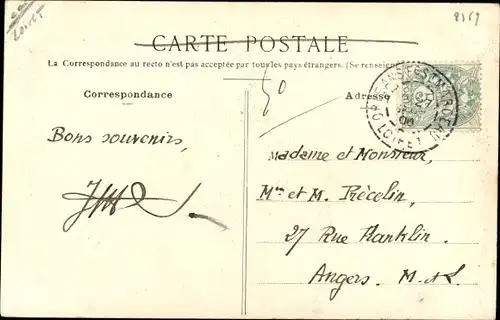 Loiret
2159
CARTE POSTALE
La Correspondance au recto n'est pas acceptée par tous les pays étrangers. (Se renseigner
50
Correspondance
Adresse
LOIRET
Bons souvenirs,
Madame et Monsieur,
Mme et M. Récelin,
27 Rue Franklin.
Angers. M. &L.